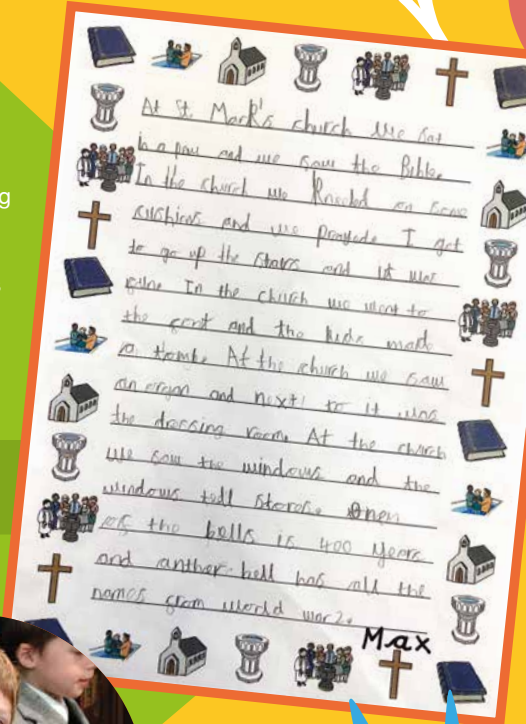 g
At St. Mark's church we sat
in a pew and we saw the Bible.
In the church we Kneeded on some
cushions and we prayede I got
to go up the stairs and it was
In the church we went to
the font and the kids made
a tombe At the church we saw
an organ and next to it was
the dressing room. At the church
we saw the windows and the
windows tell storese Onen
of the bells is 400 years
and anther bell has all the
names from world war 2.
Max